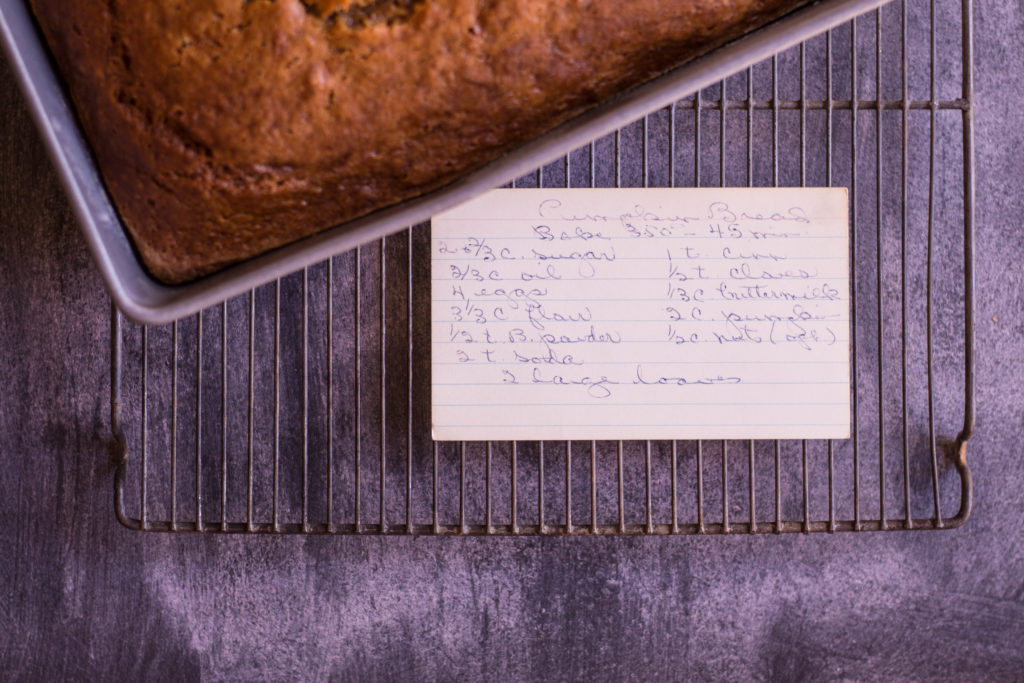 Pumpkin Bread
Bake 350 - 45 min
2 2/3 c. sugar 1 t. cinn
2/3 c oil 1/2 t. cloves
4 eggs 1/3 c buttermilk
3 1/3 c flour 2 c. pumpkin
1/2 t. B. powder 1/2 c. nuts (opt.)
2 t. soda
2 large loaves